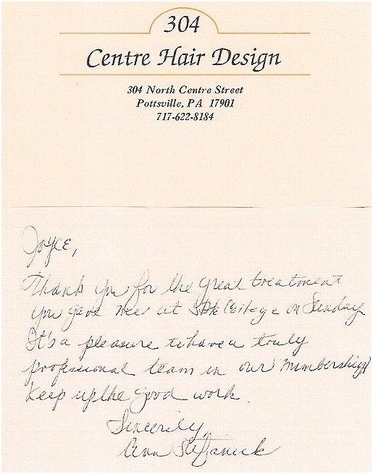 304
Centre Hair Design
304 North Centre Street
Pottsville, PA 17901
717-622-8184
Joyce,
Thank you for the great treatment
you gave me at College on Sunday
It's a pleasure to have a truly
professional team in our membership!
Keep up the good work.
Sincerely,
Ann Stefanick